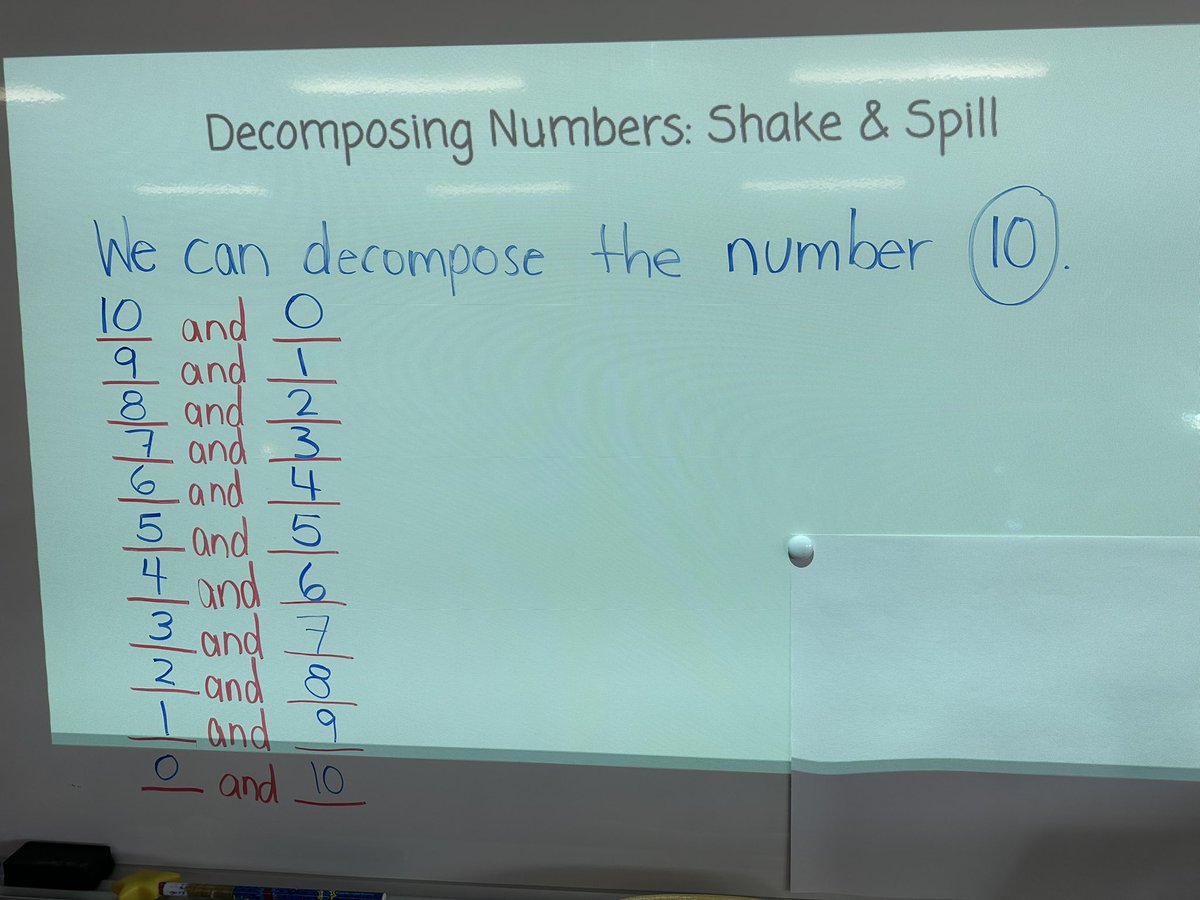 Decomposing Numbers: Shake & Spill
We can decompose the number 10.
10 and 0
9 and 1
8 and 2
7 and 3
6 and 4
5 and 5
4 and 6
3 and 7
2 and 8
1 and 9
0 and 10